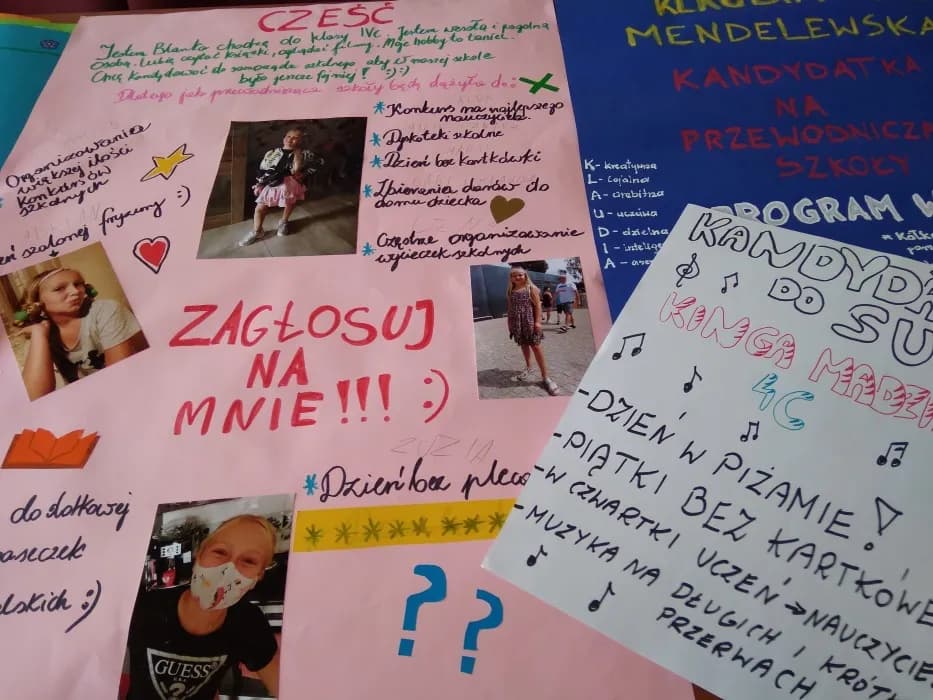 CZEŚĆ
Jestem Blanka chodzę do klasy IVc. Jestem wesołą i pogodną
osobą. Lubię czytać książki, oglądać filmy. Moje hobby to taniec.
Chcę kandydować do samorządu szkolnego aby w naszej szkole
było jeszcze fajniej! :) :)
Dlatego jako przewodnicząca szkoły będę dążyła do:
* Konkurs na najlepszego
nauczyciela.
* Dyskoteki szkolne
* Dzień bez kartkówki
* Zbierania darów do
domu dziecka
* Częstne organizowanie
wycieczek szkolnych
Organizowania
większej ilości
konkursów
szkolnych
szalonej fryzury :)
ZAGŁOSUJ
NA
MNIE!!! :)
do dotkowej
ZUZIA
* Dzień bez
? ?
GUESS
MENDELEWSKA
KANDYDATKA
NA
SZKOŁY
K- kreatywna
L- lojalna
A- ambitna
U- uczciwa
D- dzielna
I-
A-
PROGRAM
DO SU
KINGA
4C
-DZIEŃ W PIŻAMIE!
-PIĄTKI BEZ
-W CZWARTKI UCZEŃ →
-MUZYKA NA DŁUGICH I
PRZERWACH